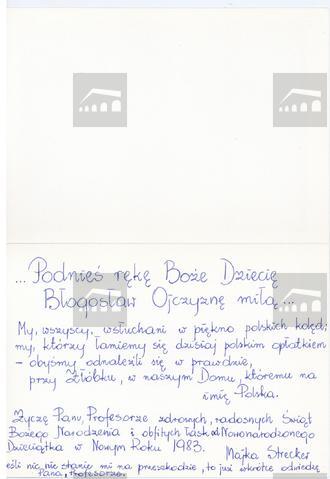 ...Podnieś rękę Boże Dziecię
Błogosław Ojczyznę miłą...
My, wszyscy, wsłuchani w piękno polskich kolęd;
my, którzy łamiemy się dzisiaj polskim opłatkiem
- obyśmy odnaleźli się w prawdzie,
przy Żłóbku, w naszym Domu, któremu na
imię Polska.
Życzę Panu, Profesorze zdrowych, radosnych Świąt
Bożego Narodzenia i obfitych Łask od Nowonarodzonego
Dzieciątka w Nowym Roku 1983.
Majka Strecker
eśli nic nie stanie mi na przeszkodzie, to już wkrótce odwiedzę
Pana, Profesorze.